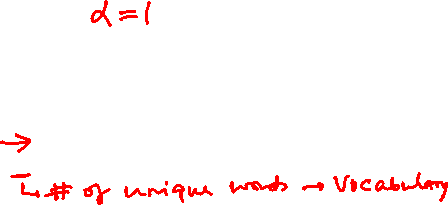 α = 1
→
↳ # of unique words → Vocabulary